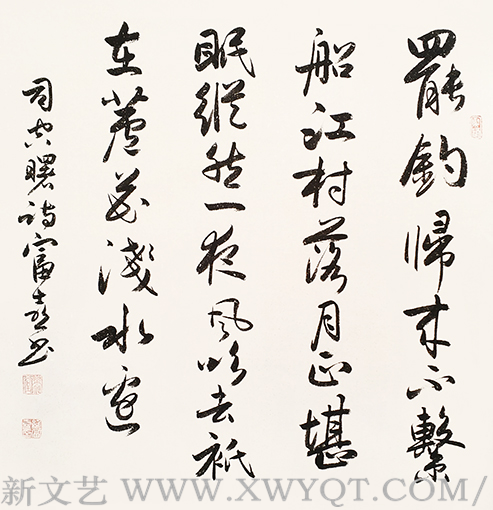 罷釣歸來不繫
船江村落月正堪
眠縱然一夜風吹去祇
在蘆花淺水邊
司空曙詩富春書
新文艺 WWW.XWYQT.COM/